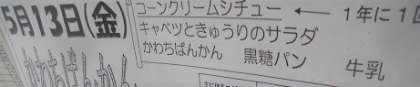 5月13日(金)
コーンクリームシチュー ← 1年に1
キャベツときゅうりのサラダ
かわちばんかん 黒糖パン 牛乳
かわちばんかん